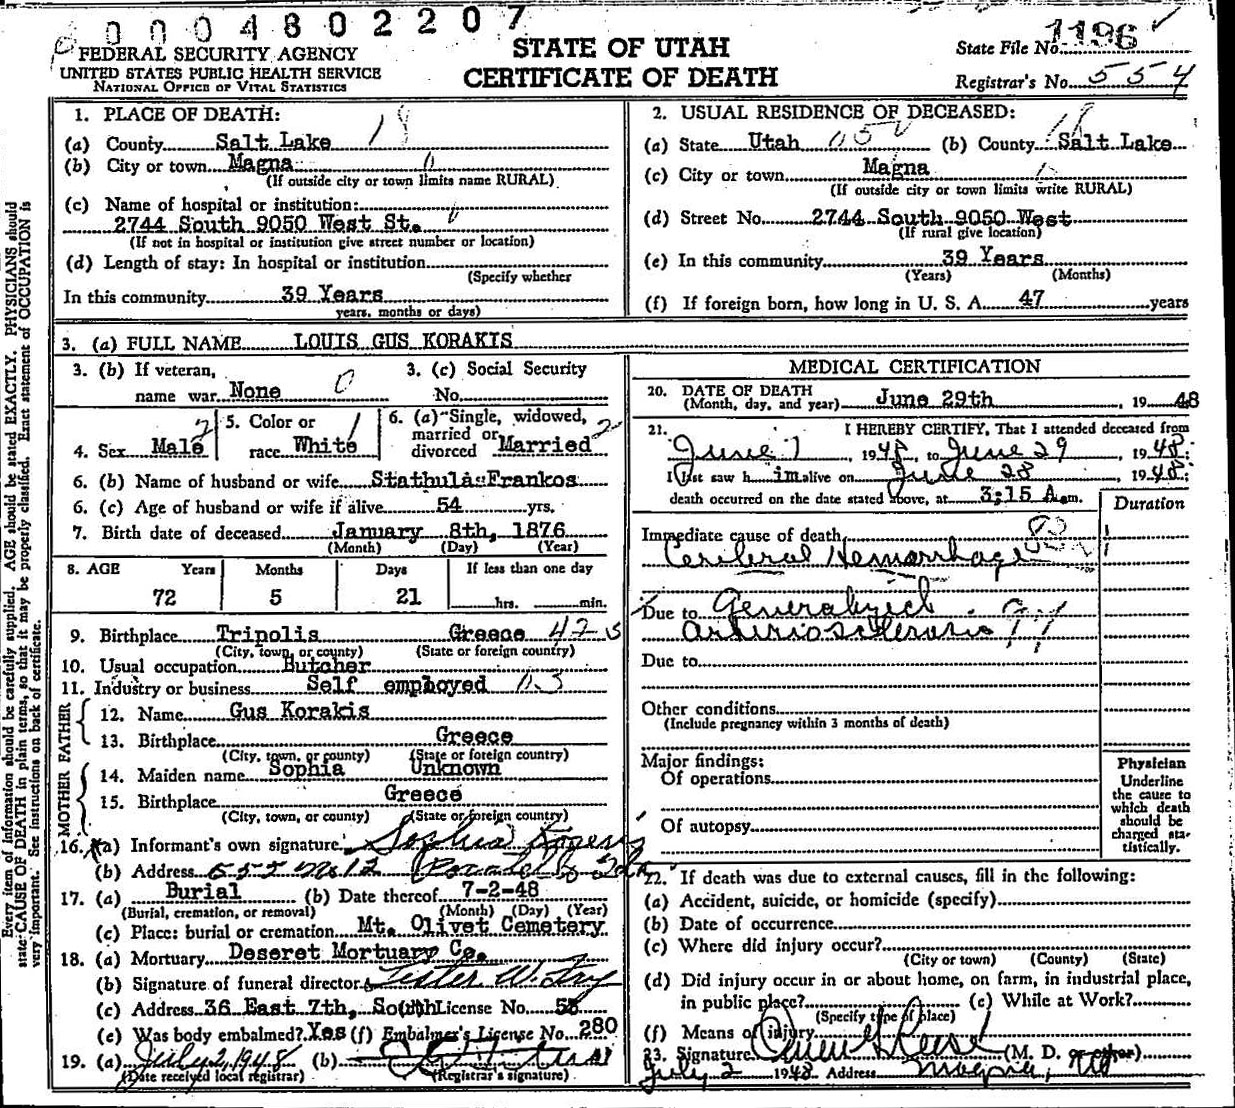 0004802207
FEDERAL SECURITY AGENCY
UNITED STATES PUBLIC HEALTH SERVICE
NATIONAL OFFICE OF VITAL STATISTICS
STATE OF UTAH
CERTIFICATE OF DEATH
State File No. 1196
Registrar's No. 554
1. PLACE OF DEATH:
(a) County Salt Lake 18
(b) City or town Magna
(If outside city or town limits name RURAL)
(c) Name of hospital or institution:
2744 South 9050 West St.
(If not in hospital or institution give street number or location)
(d) Length of stay: In hospital or institution
(Specify whether
In this community 39 Years
years, months or days)
2. USUAL RESIDENCE OF DECEASED:
(a) State Utah (b) County Salt Lake
(c) City or town Magna
(If outside city or town limits write RURAL)
(d) Street No. 2744 South 9050 West
(If rural give location)
(e) In this community 39 Years
(Years) (Months)
(f) If foreign born, how long in U. S. A. 47 years
3. (a) FULL NAME LOUIS GUS KORAKIS
3. (b) If veteran,
name war None 0
3. (c) Social Security
No.
4. Sex Male 5. Color or
race White
6. (a) Single, widowed,
married or
divorced Married
6. (b) Name of husband or wife Stathula Frankos
6. (c) Age of husband or wife if alive 54 yrs.
7. Birth date of deceased January 8th, 1876
(Month) (Day) (Year)
8. AGE Years Months Days If less than one day
72 5 21 hrs. min.
9. Birthplace Tripolis Greece
(City, town, or county) (State or foreign country)
10. Usual occupation Butcher
11. Industry or business Self employed
FATHER
12. Name Gus Korakis
13. Birthplace Greece
(City, town, or county) (State or foreign country)
MOTHER
14. Maiden name Sophia Unknown
15. Birthplace Greece
(City, town, or county) (State or foreign country)
16. (a) Informant's own signature Sophia
(b) Address
17. (a) Burial (b) Date thereof 7-2-48
(Burial, cremation, or removal) (Month) (Day) (Year)
(c) Place: burial or cremation Mt. Olivet Cemetery
18. (a) Mortuary Deseret Mortuary Co.
(b) Signature of funeral director
(c) Address 36 East 7th, South License No. 58
(e) Was body embalmed? Yes (f) Embalmer's License No. 280
19. (a) July 2, 1948 (b)
(Date received local registrar) (Registrar's signature)
MEDICAL CERTIFICATION
20. DATE OF DEATH
(Month, day, and year) June 29th, 19 48
21. I HEREBY CERTIFY, That I attended deceased from
June 1, 1948, to June 29, 1948;
I last saw h im alive on June 28, 1948;
death occurred on the date stated above, at 3:15 A. m.
Duration
Immediate cause of death
Cerebral Hemorrhage
Due to Generalyzed
arteriosclerosis
Due to
Other conditions
(Include pregnancy within 3 months of death)
Major findings:
Of operations
Of autopsy
Physician
Underline
the cause to
which death
should be
charged sta-
tistically.
22. If death was due to external causes, fill in the following:
(a) Accident, suicide, or homicide (specify)
(b) Date of occurrence
(c) Where did injury occur?
(City or town) (County) (State)
(d) Did injury occur in or about home, on farm, in industrial place,
in public place? (e) While at Work?
(Specify type of place)
(f) Means of injury
23. Signature (M. D. or other)
July 2 1948 Address Magna, Ut
Every item of information should be carefully supplied. AGE should be stated EXACTLY. PHYSICIANS should
state CAUSE OF DEATH in plain terms, so that it may be properly classified. Exact statement of OCCUPATION is
very important. See instructions on back of certificate.